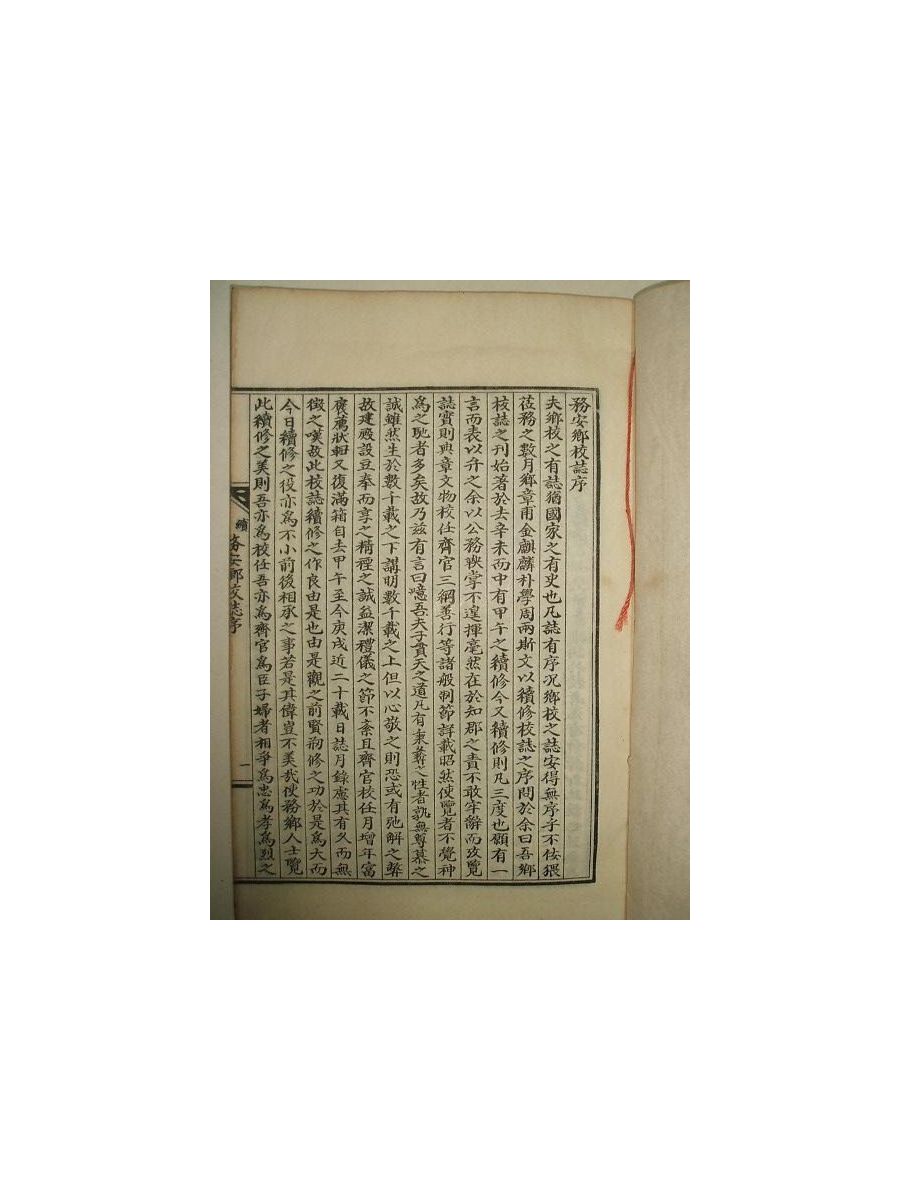 務安鄉校誌序
夫鄉校之有誌猶國家之有史也凡誌有序况鄉校之誌安得無序乎不佞猥
莅務之數月鄉章甫金麒麟朴學周兩斯文以續修校誌之序問於余曰吾鄉
校誌之刊始著於去辛未而中有甲午之續修今又續修則凡三度也願有一
言而表以弁之余以公務鞅掌不遑揮毫然在於知郡之責不敢牢辭而攷覽
誌實則典章文物校任齊官三綱善行等諸般制節詳載昭然使覽者不覺神
爲之馳者多矣故乃玆有言曰噫吾夫子貫天之道凡有秉彛之性者孰無尊慕之
誠雖然生於數千載之下講明數千載之上但以心敬之則恐或有弛解之弊
故建殿設豆奉而享之精禋之誠益潔禮儀之節不紊且齊官校任月增年富
褒薦狀輞又復滿箱自去甲午至今庚戌近二十載日誌月錄慮其有久而無
徵之嘆故此校誌續修之作良由是也由是觀之前賢刱修之功於是爲大而
今日續修之役亦爲不小前後相承之事若是其偉豈不美哉使務鄉人士覽
此續修之美則吾亦爲校任吾亦爲齊官爲臣子婦者相爭爲忠爲孝爲烈之
續 務安鄉校誌序
一